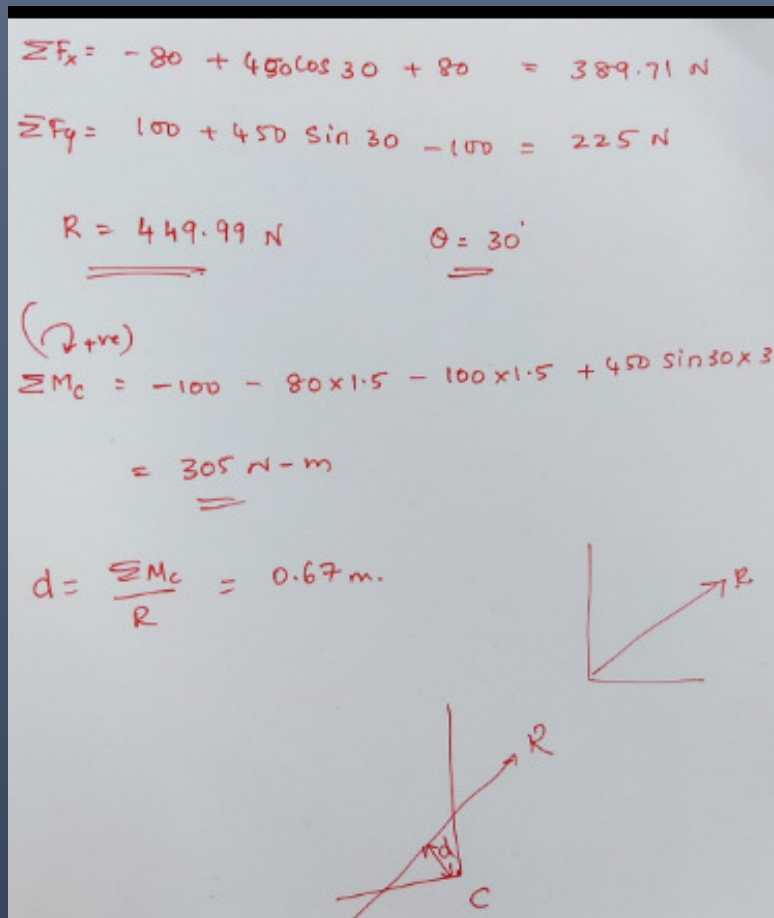 ΣFx = - 80 + 450 cos 30 + 80 = 389.71 N
ΣFy = 100 + 450 Sin 30 - 100 = 225 N
R = 449.99 N θ = 30°
(↻ +ve)
ΣMc = - 100 - 80 × 1.5 - 100 × 1.5 + 450 sin 30 × 3
= 305 N-m
d = ΣMc / R = 0.67 m.
R
R
d
C